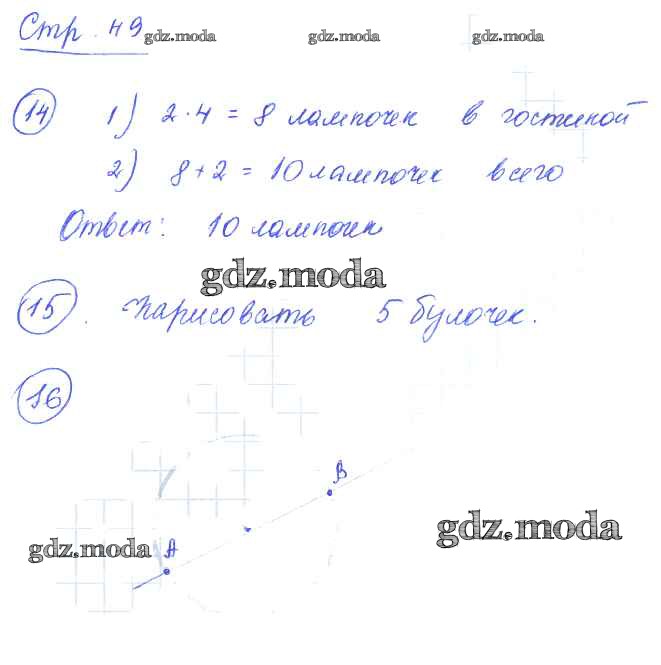 Стр. 49
gdz.moda gdz.moda gdz.moda
14 1) 2·4 = 8 лампочек в гостиной
2) 8+2 = 10 лампочек всего
Ответ: 10 лампочек
gdz.moda
15. Нарисовать 5 булочек.
16
В
gdz.moda
gdz.moda А